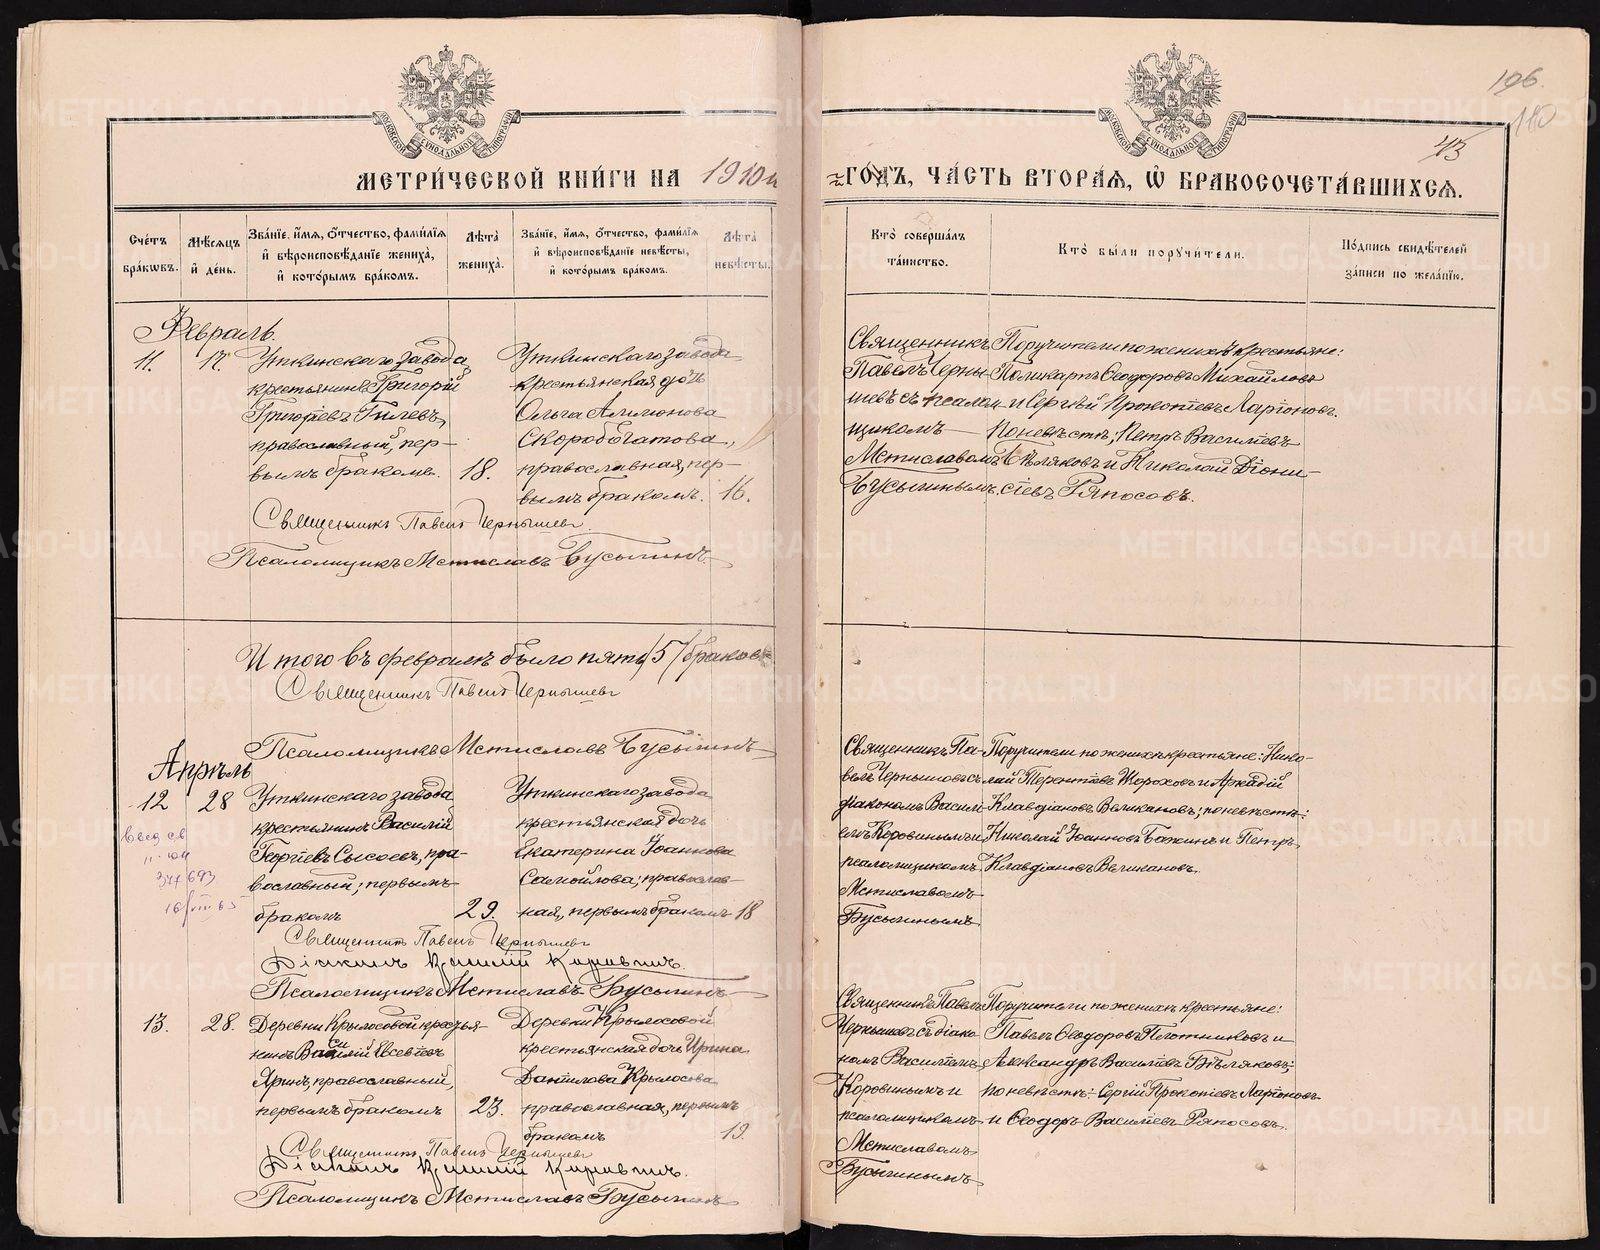 196.
110
43
МОСКОВСКОЙ СѴНОДАЛЬНОЙ ТИПОГРАФІИ
МОСКОВСКОЙ СѴНОДАЛЬНОЙ ТИПОГРАФІИ
МЕТРИ́ЧЕСКОЙ КНИ́ГИ НА 1910й ГО́ДЪ, ЧА́СТЬ ВТОРА́Я, Ѡ҆ БРАКОСОЧЕТА́ВШИХСѦ.
Сче́тъ бра́кѡвъ.
Мѣ́сѧцъ и҆ де́нь.
Зва́нїе, и҆́мѧ, ѻ҆́тчество, фамѝлїѧ и҆ вѣроисповѣ́данїе жениха̀, и҆ кото́рымъ бра́комъ.
Лѣ́та жениха̀.
Зва́нїе, и҆́мѧ, ѻ҆́тчество, фамѝлїѧ и҆ вѣроисповѣ́данїе невѣ́сты, и҆ кото́рымъ бра́комъ.
Лѣ́та невѣ́сты.
Кто̀ соверша́лъ та́инство.
Кто̀ бы́ли порꙋчи́тели.
По́дпись свидѣ́телей за́писи по жела́нїю.
Февраль.
11.
17.
Уткинскаго завода
крестьянинъ Григорій
Григорьевъ Гилевъ,
православный, пер-
вымъ бракомъ.
18.
Уткинскаго завода
крестьянская дочь
Ольга
Скоробогатова,
православная, пер-
вымъ бракомъ.
16.
Священникъ
Павелъ Черны-
шевъ съ псалом-
щикомъ
Мстиславомъ
Бусыгинымъ.
Поручители по женихѣ крестьяне:
Поликарпъ Ѳеодоровъ Михайловъ
и Сергѣй Прокопіевъ Ларіоновъ.
По невѣстѣ; Петръ Васильевъ
Бѣляковъ и Николай Діони-
сіевъ Ряпосовъ.
Священникъ Павелъ Чернышевъ.
Псаломщикъ Мстиславъ Бусыгинъ.
Итого въ февралѣ было пять /5/ браковъ
Священникъ Павелъ Чернышевъ
Псаломщикъ Мстиславъ Бусыгинъ
Апрѣль
12
28
Уткинскаго завода
крестьянинъ Василій
Георгіевъ Сысоевъ, пра-
вославный; первымъ
бракомъ
29.
Уткинскаго завода
крестьянская дочь
Екатерина Іоаннова
Самойлова; православ-
ная, первымъ бракомъ
18
Священникъ Па-
велъ Чернышовъ съ
діакономъ Васил-
емъ Коровинымъ и
псаломщикомъ
Мстиславомъ
Бусыгинымъ
Поручители по женихѣ крестьяне: Нико-
лай Терентіевъ Шороховъ и Аркадій
Клавдіановъ Великановъ; по невѣстѣ:
Николай Іоанновъ Бажинъ и Петръ
Клавдіановъ Великановъ.
377693
Священникъ Павелъ Чернышевъ
Діаконъ Василій Коровинъ.
Псаломщикъ Мстиславъ Бусыгинъ
13.
28.
Деревни Крылосовой крестья-
нинъ Василій Евсевіевъ
Яринъ, православный,
первымъ бракомъ
23.
Деревни Крылосовой
крестьянская дочь Ирина
Даніилова Крылосова
православная, первымъ
бракомъ
19.
Священникъ Павелъ
Чернышевъ съ діако-
номъ Василіемъ
Коровинымъ и
псаломщикомъ
Мстиславомъ
Бусыгинымъ
Поручители по женихѣ крестьяне:
Павелъ Ѳеодоровъ Плотниковъ и
Александръ Васильевъ Бѣляковъ;
по невѣстѣ: Сергій Прокопіевъ Ларіоновъ
и Ѳеодоръ Васильевъ Ряпосовъ.
Священникъ Павелъ Чернышевъ
Діаконъ Василій Коровинъ.
Псаломщикъ Мстиславъ Бусыгинъ
METRIKI.GASO-URAL.RU